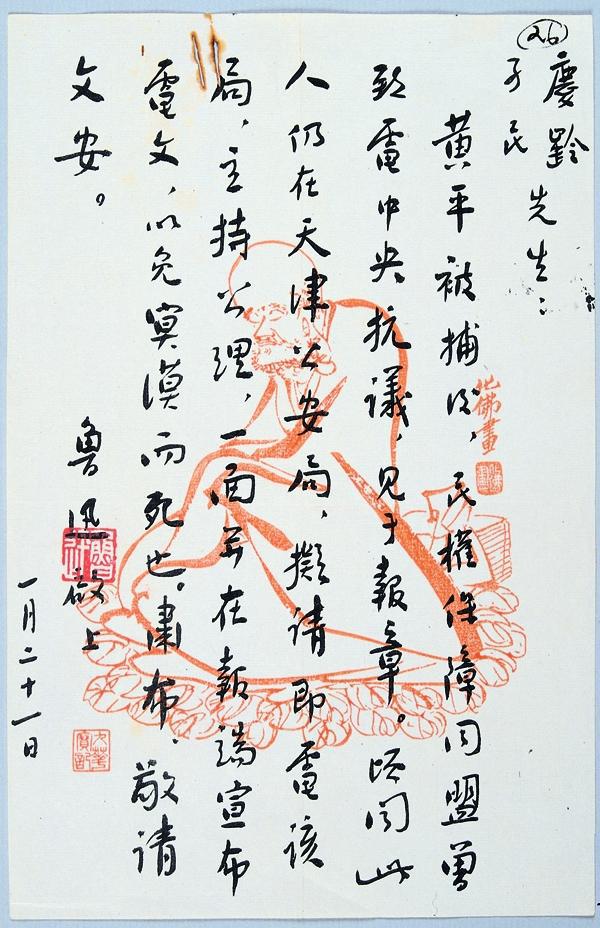 26
慶齡
孑民
先生:
黃平被捕後,民權保障同盟曾
致電中央抗議,見于報章。頃聞此
人仍在天津公安局,擬請即電該
局,主持公理,一面并在報端宣布
電文,以免冥漠而死也。肅布,敬請
文安。
魯迅 啟上
一月二十一日
化佛畫
九華寶記